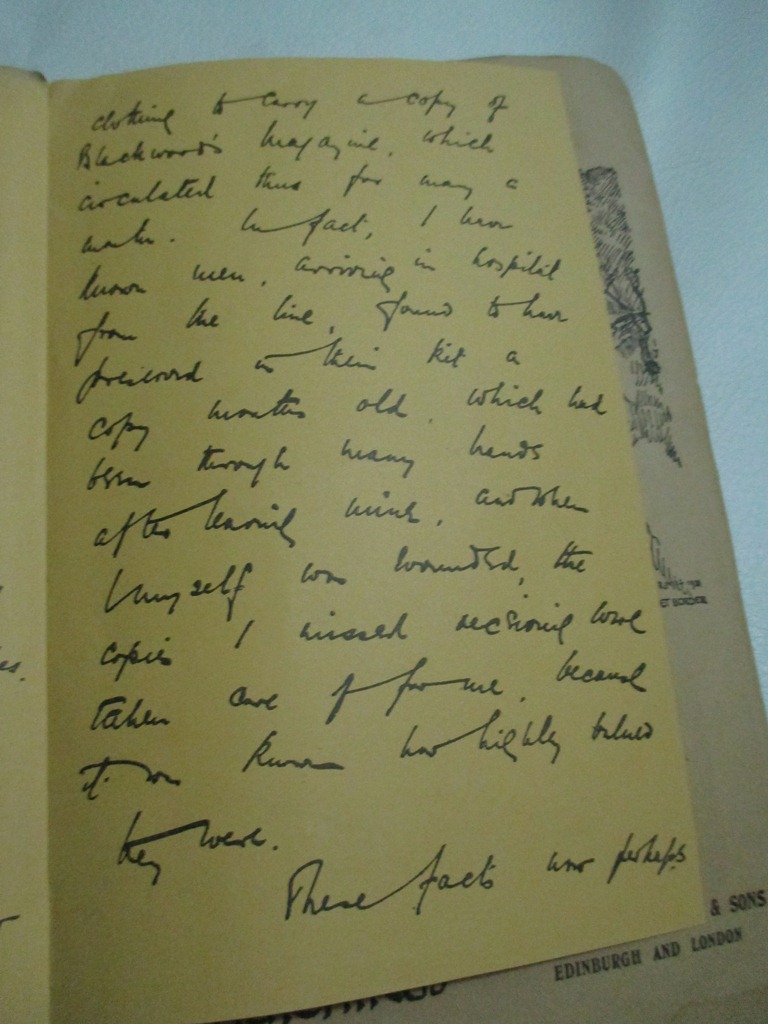 clothing to carry a copy of
Blackwood's Magazine, which
circulated thus for many a
month. In fact, I have
known men, arriving in hospital
from the line, found to have
preserved in their kit a
copy months old, which had
been through many hands
after leaving mine, and when
I myself was wounded, the
copies I missed receiving were
taken care of for me, because
it was known how highly valued
they were.
These facts are perhaps
es.
& SONS
EDINBURGH AND LONDON